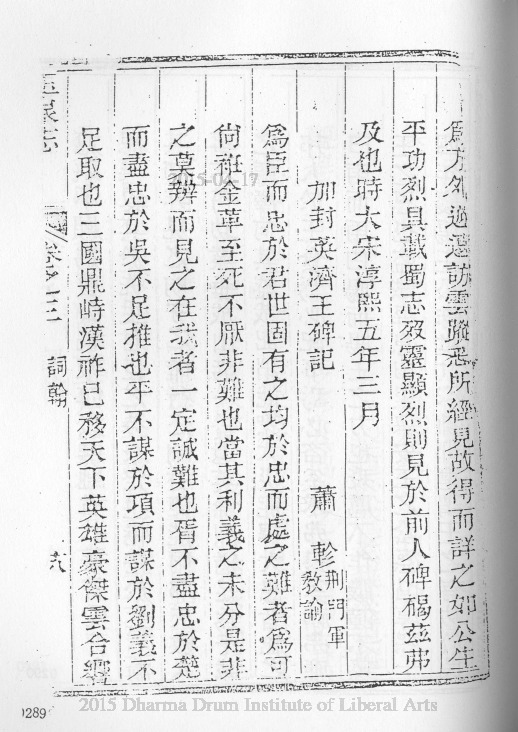 爲方外遊遠訪雲蹤悉所經見故得而詳之如公生
平功烈具載蜀志歿靈顯烈則見於前人碑碣茲弗
及也時大宋淳熙五年三月
加封英濟王碑記 蕭軫荆門軍教諭
爲臣而忠於君世固有之均於忠而處之難者爲可
尙衽金革至死不厭非難也當其利義之未分是非
之莫辨而見之在我者一定誠難也胥不盡忠於楚
而盡忠於吳不足推也平不謀於項而謀於劉義不
足取也三國鼎峙漢祚已移天下英雄豪傑雲合響
玉泉志 卷之三 詞翰
0289
2015 Dharma Drum Institute of Liberal Arts